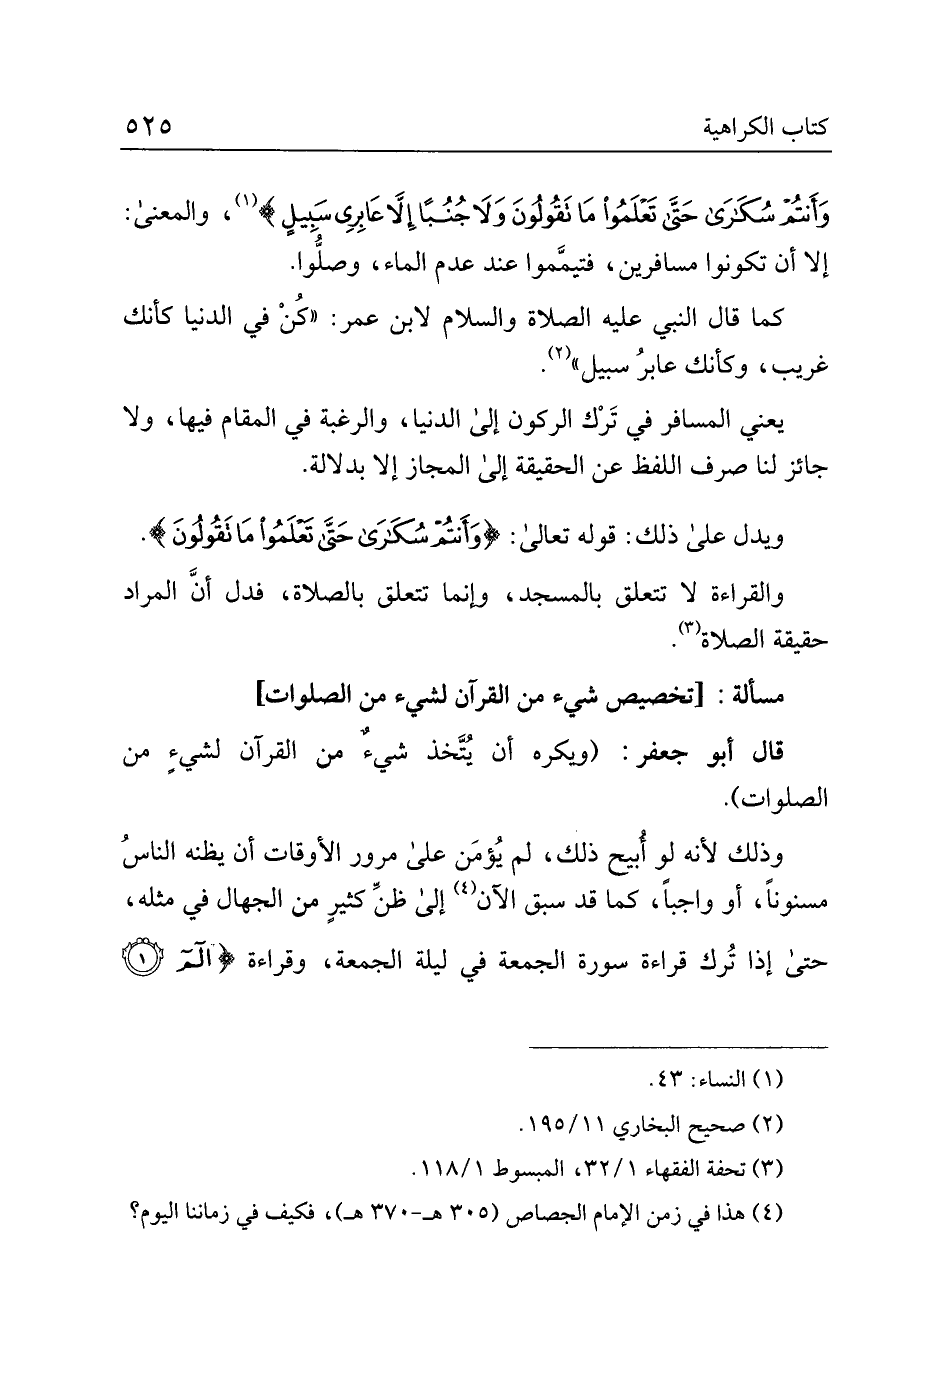 كتاب الكراهية ٥٢٥
وَأَنتُمْ سُكَٰرَىٰ حَتَّىٰ تَعْلَمُوا۟ مَا تَقُولُونَ وَلَا جُنُبًا إِلَّا عَابِرِى سَبِيلٍ ﴾(١)، والمعنىٰ:
إلا أن تكونوا مسافرين، فتيمَّموا عند عدم الماء، وصلُّوا.
كما قال النبي عليه الصلاة والسلام لابن عمر: «كُنْ في الدنيا كأنك
غريب، وكأنك عابرُ سبيل»(٢).
يعني المسافر في تَرْك الركون إلىٰ الدنيا، والرغبة في المقام فيها، ولا
جائز لنا صرف اللفظ عن الحقيقة إلىٰ المجاز إلا بدلالة.
ويدل علىٰ ذلك: قوله تعالىٰ: ﴿وَأَنتُمْ سُكَٰرَىٰ حَتَّىٰ تَعْلَمُوا۟ مَا تَقُولُونَ ﴾.
والقراءة لا تتعلق بالمسجد، وإنما تتعلق بالصلاة، فدل أنَّ المراد
حقيقة الصلاة(٣).
مسألة : [تخصيص شيء من القرآن لشيء من الصلوات]
قال أبو جعفر : (ويكره أن يُتَّخذ شيءٌ من القرآن لشيءٍ من
الصلوات).
وذلك لأنه لو أُبيح ذلك، لم يُؤمَن علىٰ مرور الأوقات أن يظنه الناسُ
مسنوناً، أو واجباً، كما قد سبق الآن(٤) إلىٰ ظنِّ كثيرٍ من الجهال في مثله،
حتىٰ إذا تُرك قراءة سورة الجمعة في ليلة الجمعة، وقراءة ﴿ الٓمٓ ١
(١) النساء: ٤٣.
(٢) صحيح البخاري ١٩٥/١١.
(٣) تحفة الفقهاء ٣٢/١، المبسوط ١١٨/١.
(٤) هذا في زمن الإمام الجصاص (٣٠٥ هـ-٣٧٠ هـ)، فكيف في زماننا اليوم؟